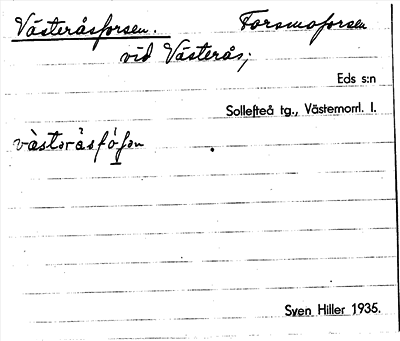 Västeråsforsen. Forsmoforsen
vid Västerås;
Eds s:n
Sollefteå tg., Västernorrl. l.
vàstəråsfóʃən
Sven Hiller 1935.